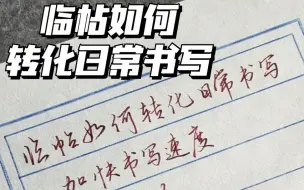 临帖如何
转化日常书写
临帖如何转化日常书写
加快书写速度